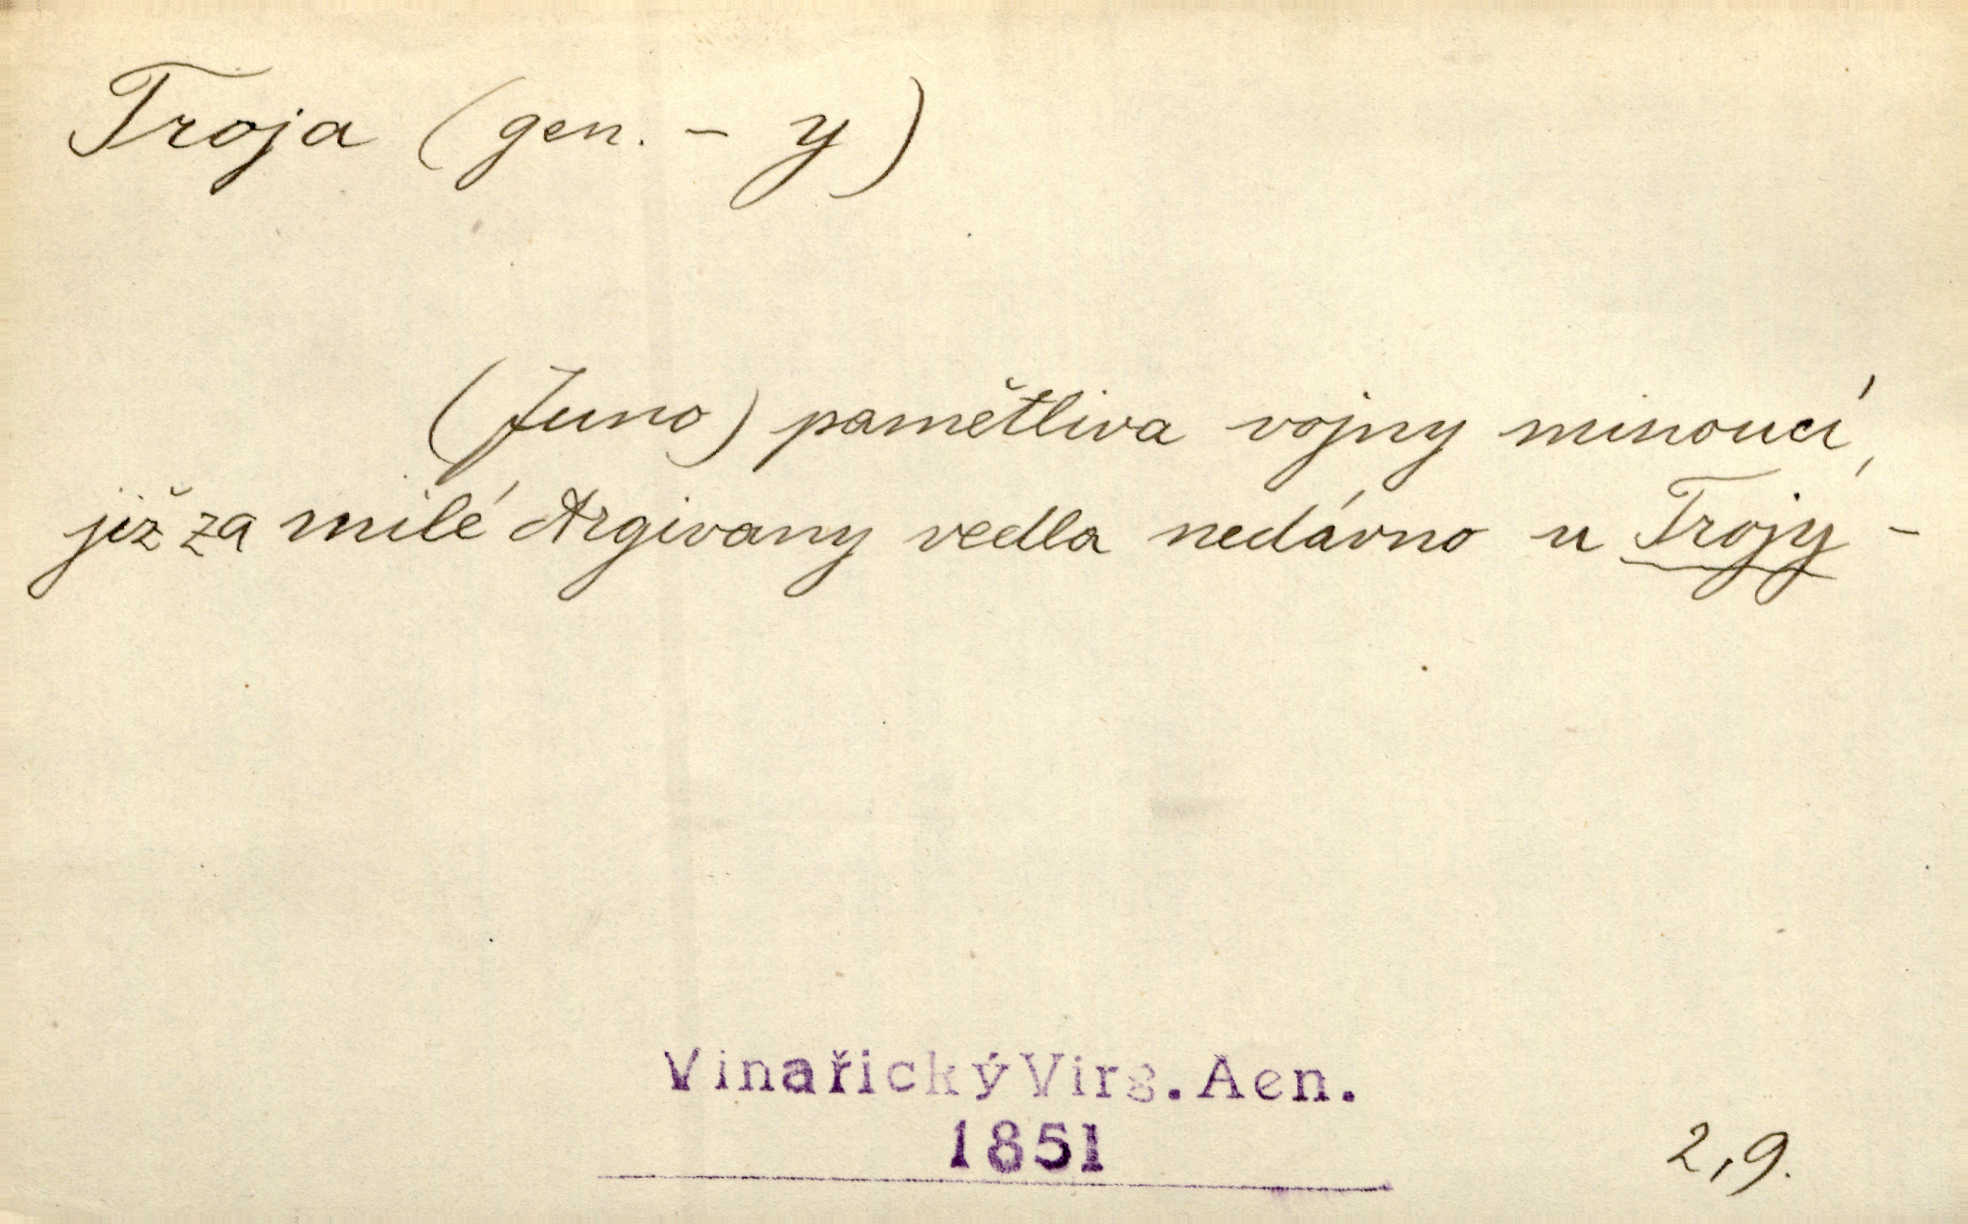 Troja (gen. - y)
(Juno) pamětliva vojny minoucí,
již za milé Argivany vedla nedávno u Trojy -
Vinařický Virg. Aen.
1851
2,9.